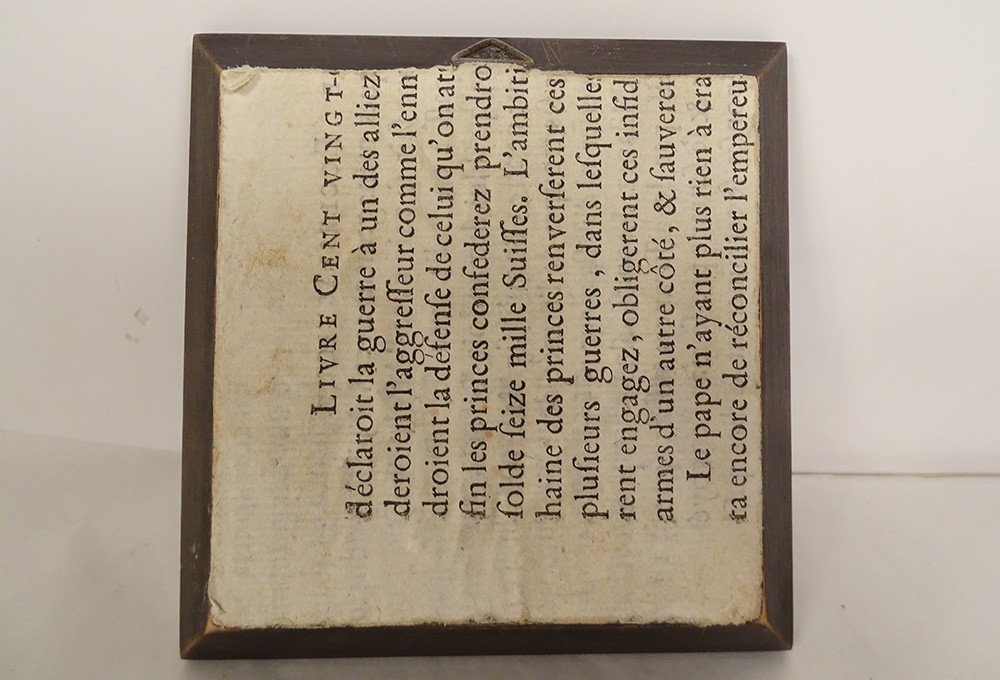 LIVRE CENT VINGT-
déclaroit la guerre à un des alliez
deroient l'aggreſſeur comme l'enn
droient la défenſe de celui qu'on at
fin les princes confederez prendro
ſolde ſeize mille Suiſſes. L'ambiti
haine des princes renverſerent ces
pluſieurs guerres, dans leſquelle
rent engagez, obligerent ces infid
armes d'un autre côté, & ſauveren
Le pape n'ayant plus rien à cra
ta encore de réconcilier l'empereu